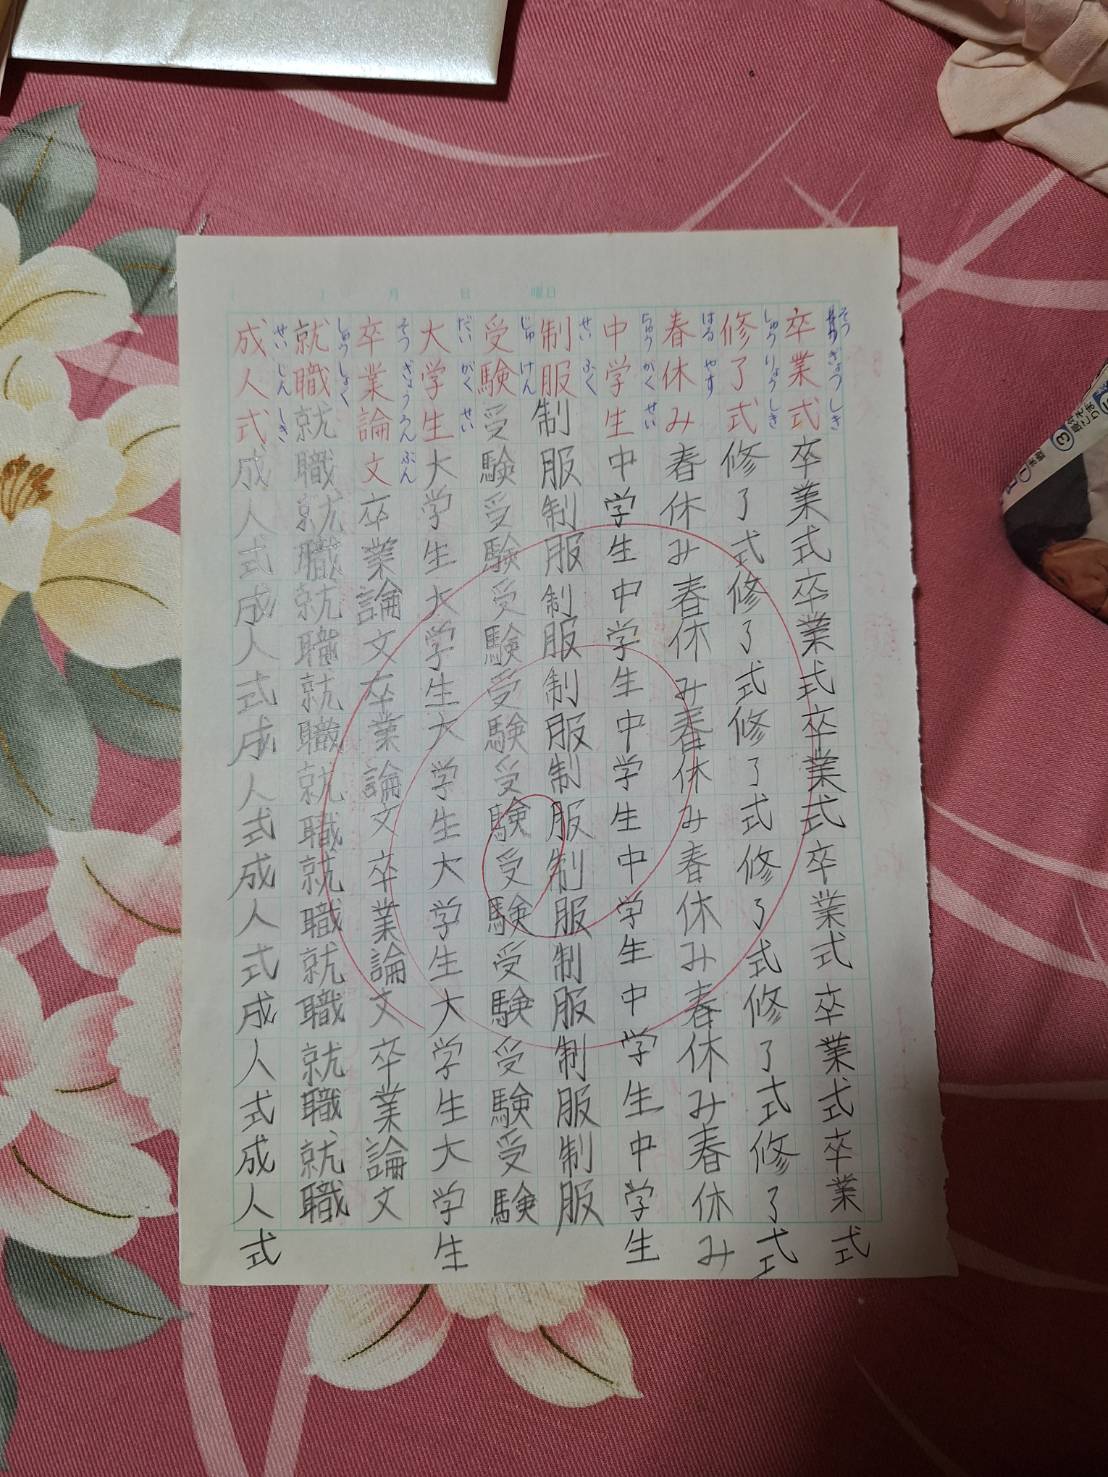 月 日 曜日
そつぎょうしき
卒業式卒業式卒業式卒業式卒業式卒業式卒業式
しゅうりょうしき
修了式修了式修了式修了式修了式修了式修了式
はるやす
春休み春休み春休み春休み春休み春休み春休み
ちゅうがくせい
中学生中学生中学生中学生中学生中学生中学生
せいふく
制服制服制服制服制服制服制服制服制服制服
じゅけん
受験受験受験受験受験受験受験受験受験受験
だいがくせい
大学生大学生大学生大学生大学生大学生大学生
そつぎょうろんぶん
卒業論文卒業論文卒業論文卒業論文卒業論文
しゅうしょく
就職就職就職就職就職就職就職就職就職就職
せいじんしき
成人式成人式成人式成人式成人式成人式成人式